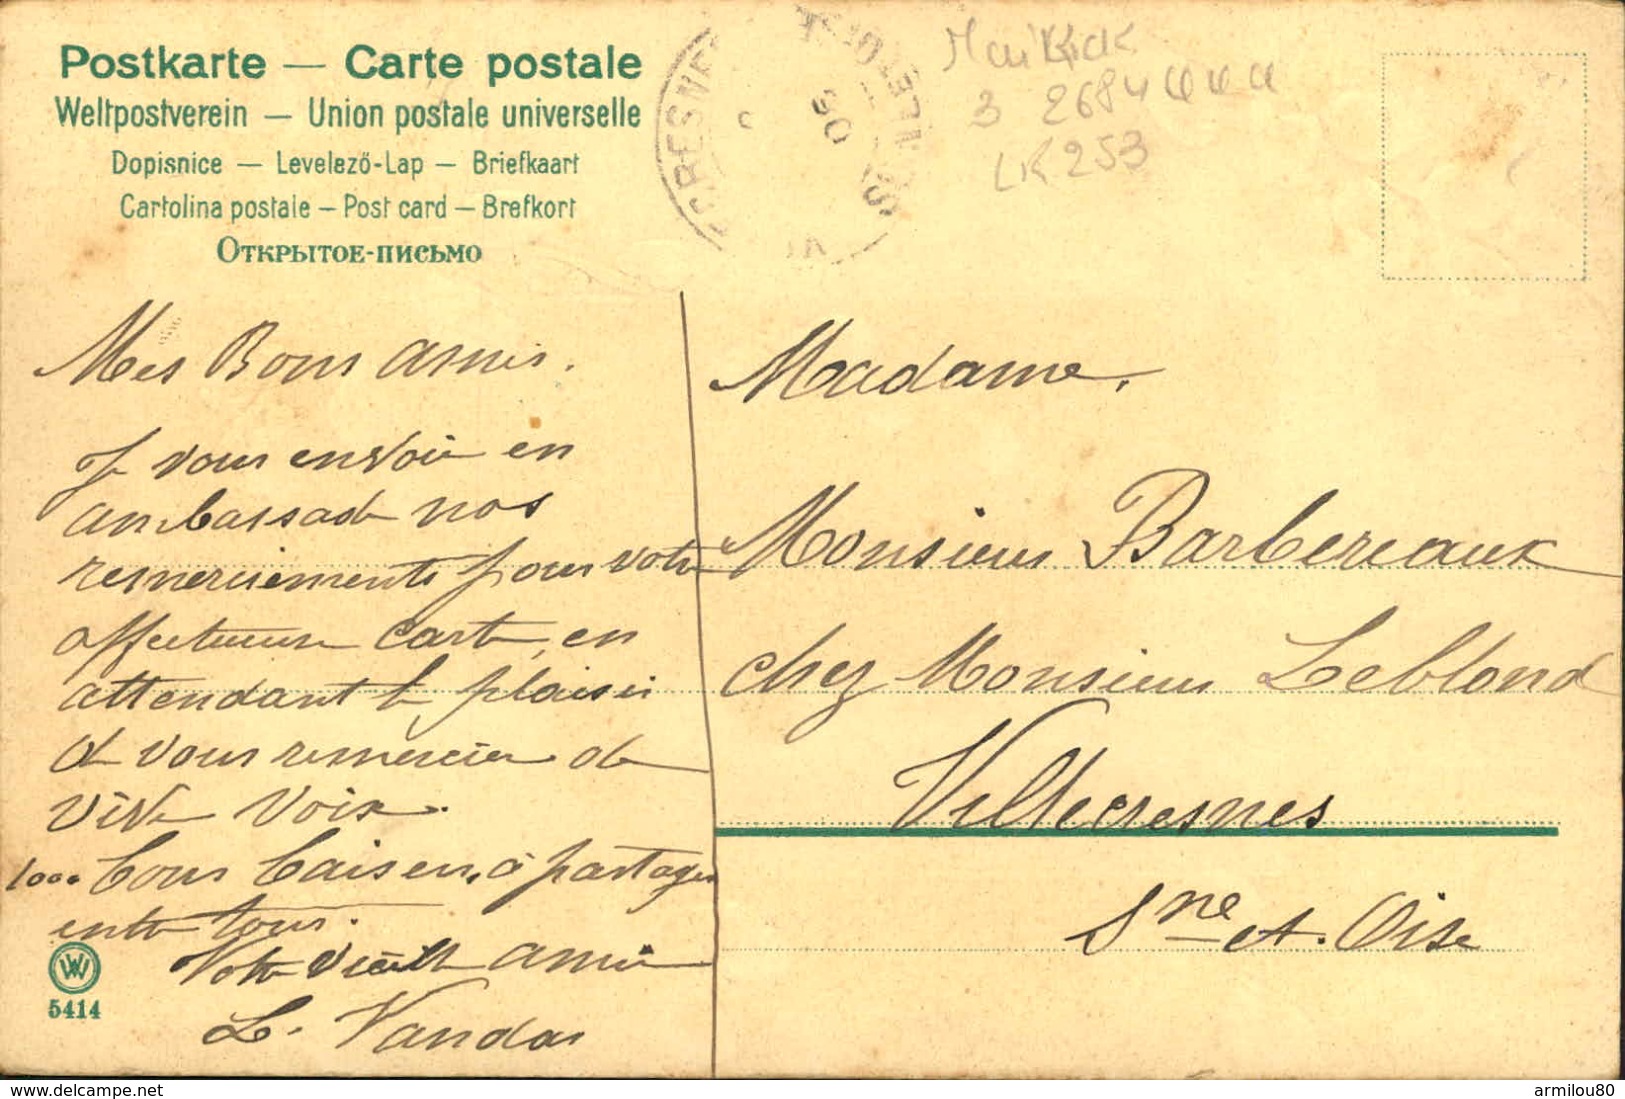 Postkarte — Carte postale
Weltpostverein — Union postale universelle
Dopisnice — Levelező-Lap — Briefkaart
Cartolina postale — Post card — Brefkort
Открытое-письмо
CRESNE
SEINE ET OISE
06
3 2684
LK 253
Mes Bons amis.
Je vous envoie en
ambassade nos
remerciements pour votre
affectueuse carte, en
attendant le plaisir
de vous remercier de
vive voix.
1000 bons baisers, à partager
entre tous.
Votre vieille amie
L. Vandas
Madame,
Monsieur Barbereaux
chez Monsieur Leblond
Villecresnes
Sne et. Oise
W
5414
https://www.delcampe.net
armilou80